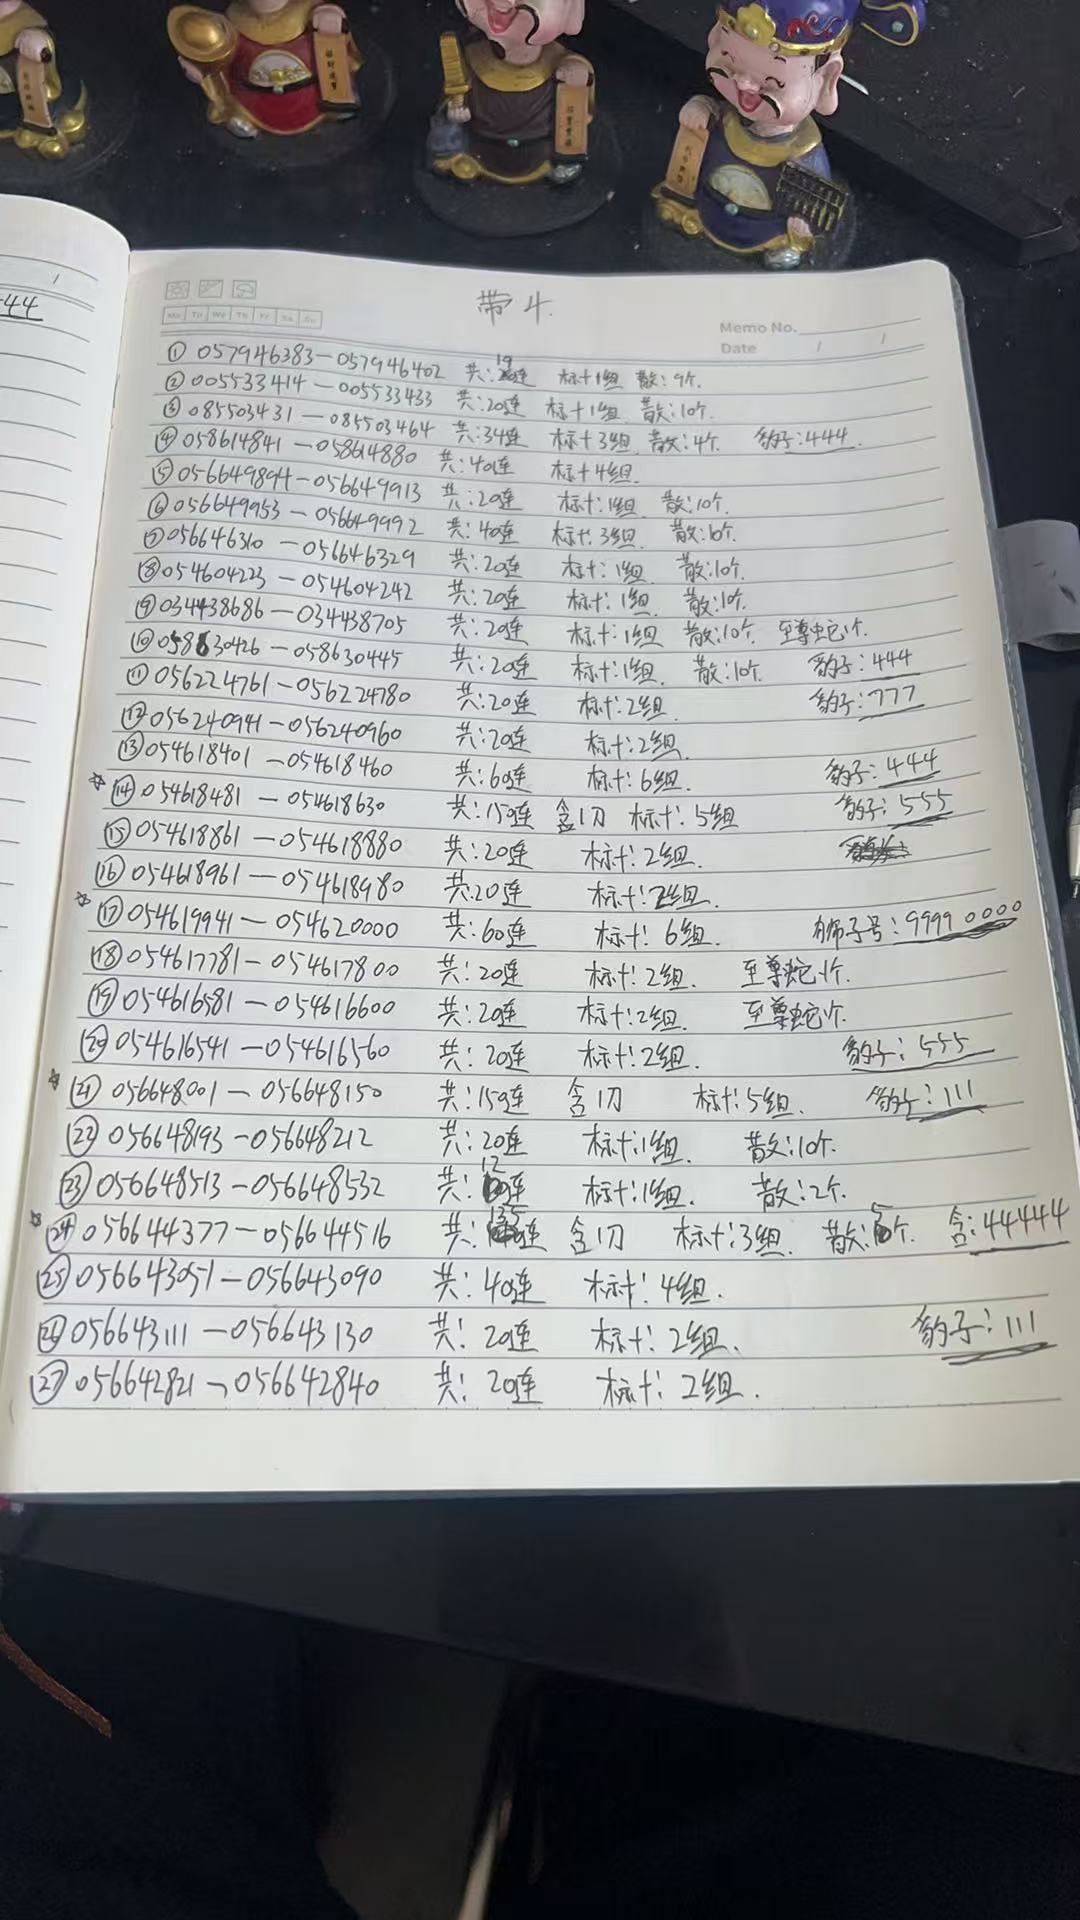 44
带4.
Mo Tu We Th Fr Sa Su
Memo No.
Date / /
① 057946383—057946402 共:19连 标十1组 散:9个.
② 005533414—005533433 共:20连 标十1组 散:10个.
③ 085503431—085503464 共:34连 标十3组 散:4个. 豹子:444
④ 058614841—058614880 共:40连 标十4组
⑤ 056649894—056649913 共:20连 标十:1组 散:10个.
⑥ 056649953—056649992 共:40连 标十:3组 散:10个.
⑦ 056646310—056646329 共:20连 标十:1组 散:10个.
⑧ 054604223—054604242 共:20连 标十:1组 散:10个.
⑨ 034438686—034438705 共:20连 标十:1组 散:10个 至尊蛇1个.
⑩ 058630426—058630445 共:20连 标十:1组 散:10个 豹子:444
⑪ 056224761—056224780 共:20连 标十:2组. 豹子:777
⑫ 056240941—056240960 共:20连 标十:2组.
⑬ 054618401—054618460 共:60连 标十:6组. 豹子:444
☆⑭ 054618481—054618630 共:150连 含1刀 标十:5组 豹子:555
⑮ 054618861—054618880 共:20连 标十:2组.
⑯ 054618961—054618980 共:20连 标十:2组.
☆⑰ 054619941—054620000 共:60连 标十:6组. 狮子号:99990000
⑱ 054617781—054617800 共:20连 标十:2组. 至尊蛇1个.
⑲ 054616581—054616600 共:20连 标十:2组. 至尊蛇1个.
⑳ 054616541—054616560 共:20连 标十:2组. 豹子:555
☆㉑ 056648001—056648150 共:150连 含1刀 标十:5组. 豹子:111
㉒ 056648193—056648212 共:20连 标十:1组. 散:10个.
㉓ 056648513—056648532 共:12连 标十:1组. 散:2个.
☆㉔ 056644377—056644516 共:135连 含1刀 标十:3组. 散:5个. 含:44444
㉕ 056643051—056643090 共:40连 标十:4组.
㉖ 056643111—056643130 共:20连 标十:2组. 豹子:111
㉗ 056642821—056642840 共:20连 标十:2组.